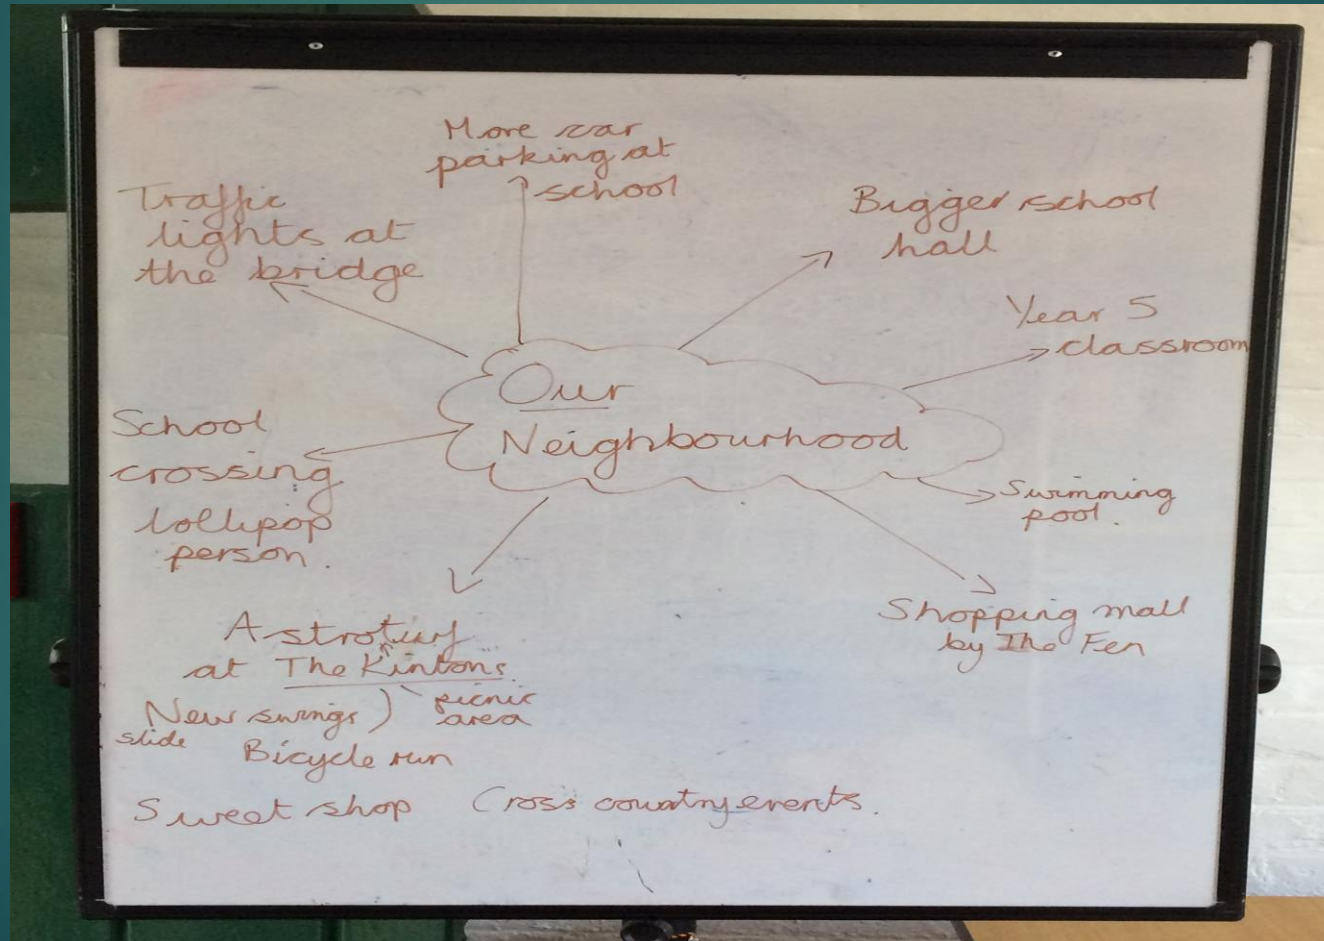 More car
parking at
school
Traffic
lights at
the bridge
Bigger school
hall
Year 5
classroom
Our
Neighbourhood
School
crossing
lollipop
person.
Swimming
pool.
Shopping mall
by The Fen
Astroturf
at The Kintons
New swings) picnic
area
slide
Bicycle run
Sweet shop Cross country events.